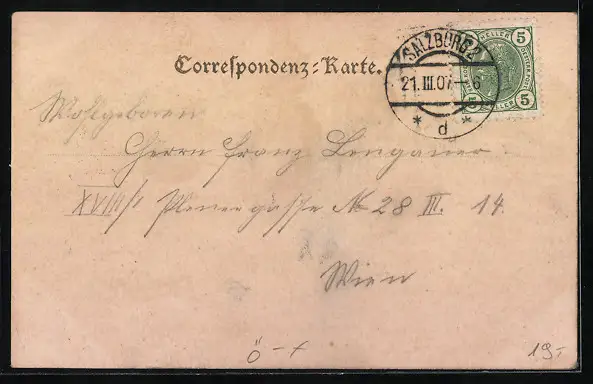 Correspondenz-Karte.
SALZBURG 2
21.III.07-6
* d *
5 HELLER 5
5 HELLER 5
Wohlgeboren
Herrn Franz Lengauer
XVIII/1 Plenergasse № 28 III. 14.
Wien
Ö - x
19.-